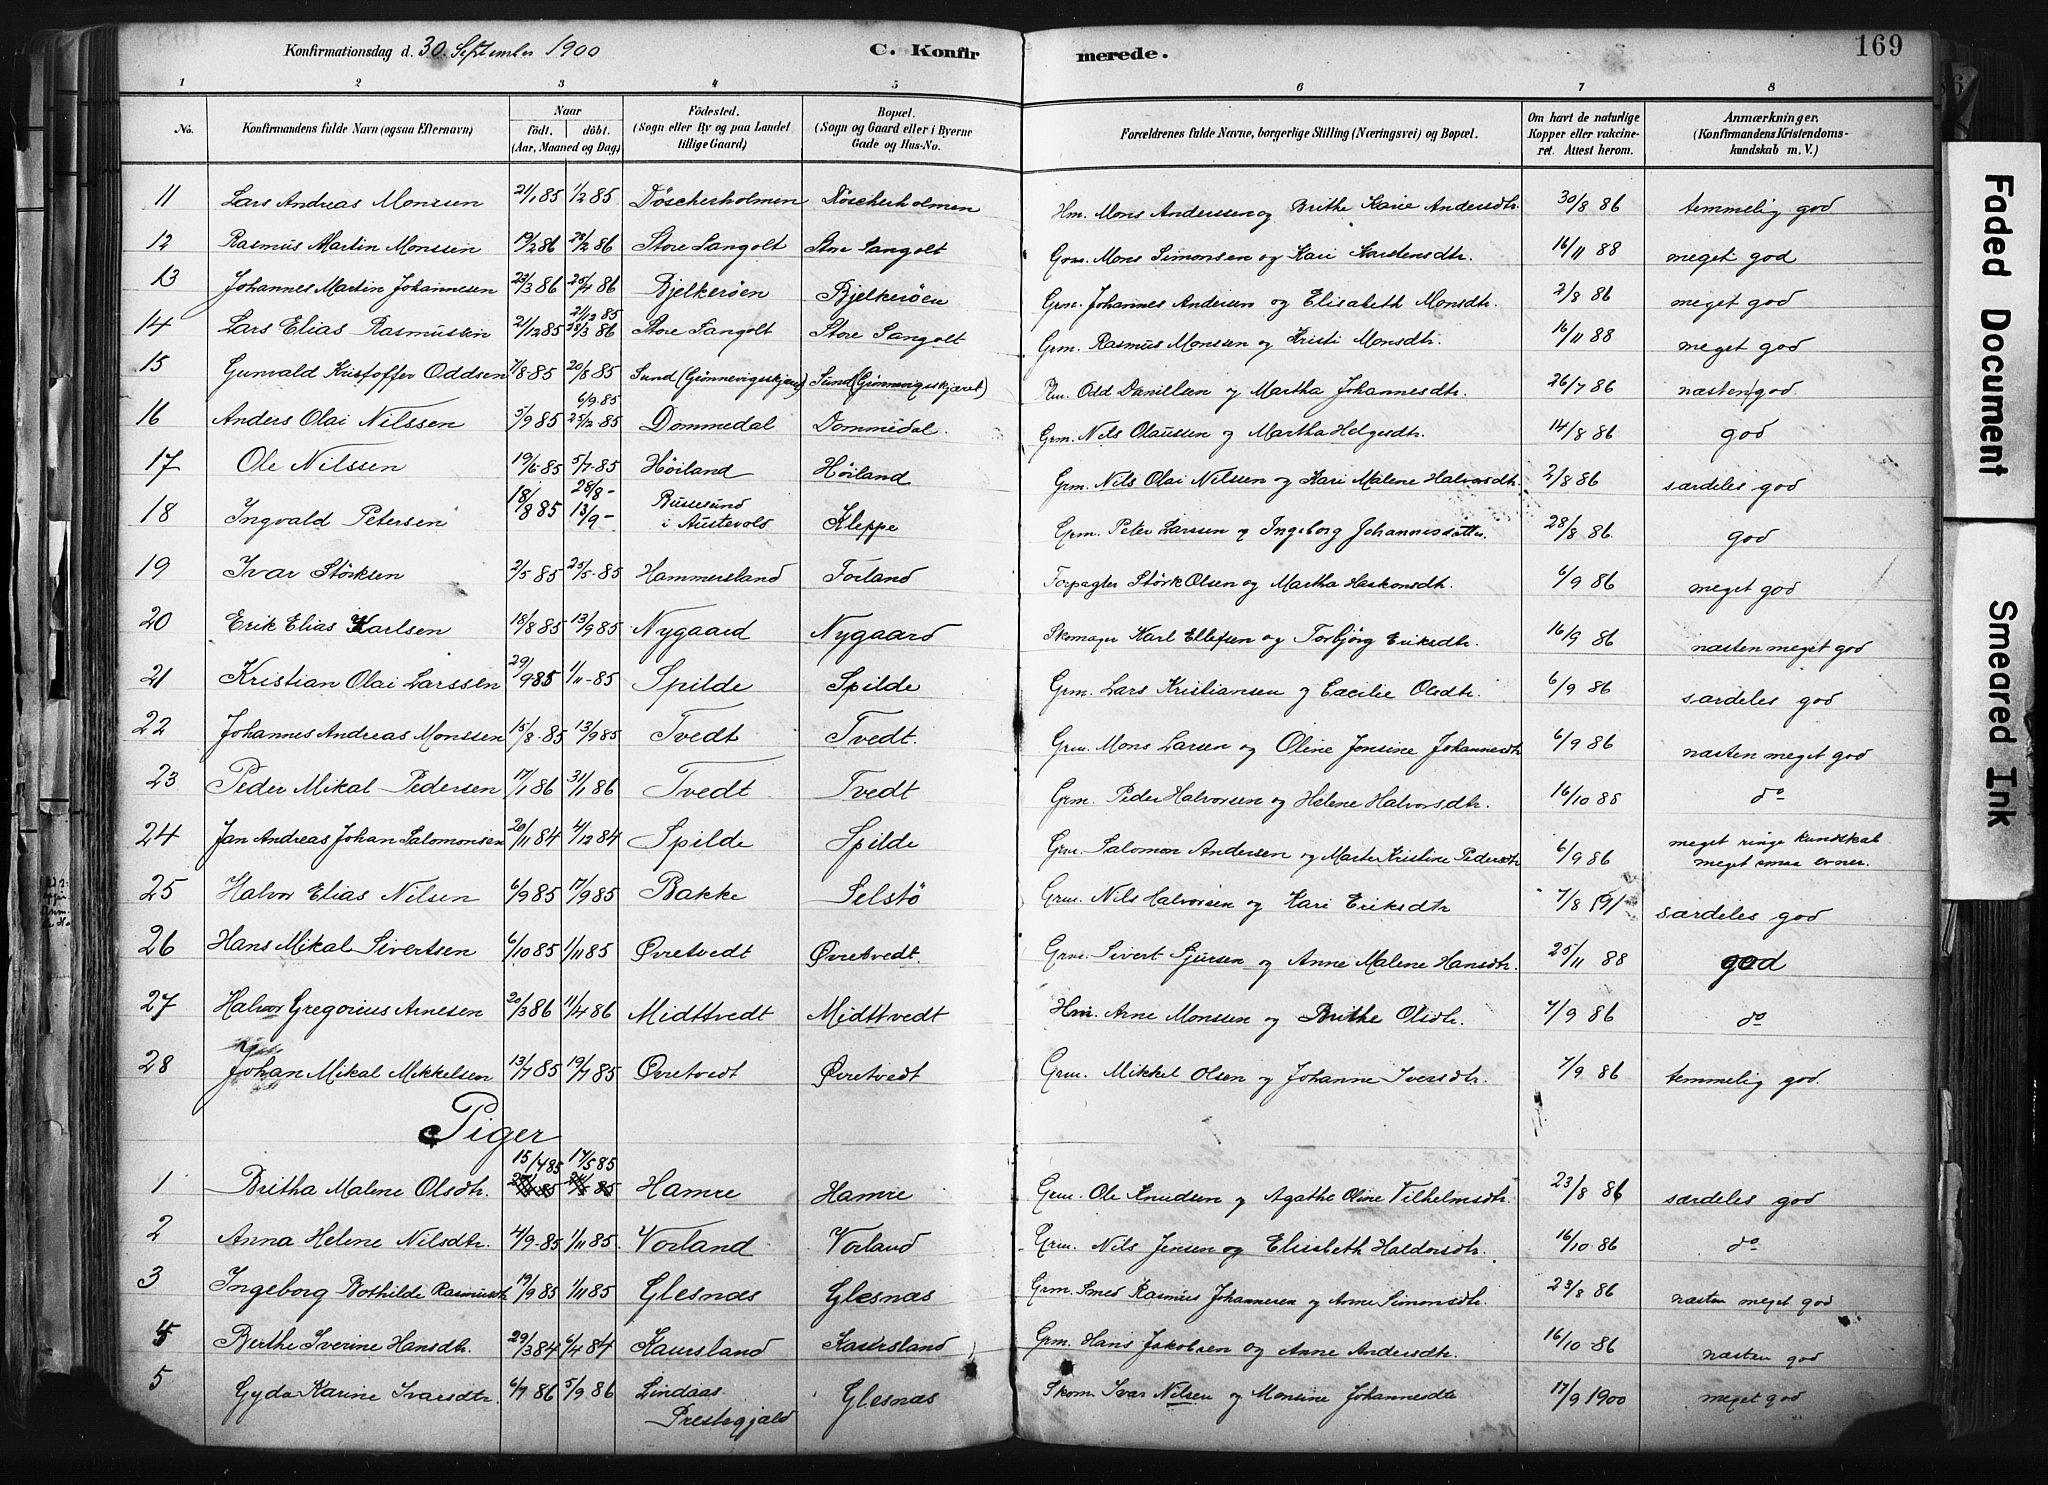 Konfirmationsdag d. 30. September 1900 C. Konfirmerede. 169
1 2 3 4 5 6 7 8
No. Konfirmandens fulde Navn (ogsaa Efternavn) Naar födt. döbt. (Aar, Maaned og Dag) Födested. (Sogn eller By og paa Landet tillige Gaard) Bopæl. (Sogn og Gaard eller i Byerne Gade og Hus-No. Forældrenes fulde Navne, borgerlige Stilling (Næringsvei) og Bopæl. Om havt de naturlige Kopper eller vakcineret. Attest herom. Anmærkninger. (Konfirmandens Kristendomskundskab m. V.)
11 Lars Andreas Monssen 21/1 85 1/2 85 Döscherholmen Döscherholmen Hm. Mons Anderssen og Brithe Karie Andersdtr. 30/8 86 temmelig god
12 Rasmus Martin Monssen 19/2 86 28/2 86 Store Sangolt Store Sangolt Grm. Mons Simonsen og Kari Karstensdtr. 16/11 88 meget god
13 Johannes Martin Johannesen 23/3 86 26/4 86 Bjelkeröen Bjelkeröen Grm. Johannes Andersen og Elisabeth Monsdtr. 2/8 86 meget god
14 Lars Elias Rasmussen 21/12 85 21/12 85 28/3 86 Store Sangolt Store Sangolt Grm. Rasmus Monssen og Kristi Monsdtr. 16/11 88 meget god
15 Gunvald Kristoffer Oddsen 7/8 85 20/8 85 Sund (Günnevigsskjæret) Sund (Günnevigsskjæret) Odd Daniellsen og Martha Johannesdtr. 26/7 86 næsten god
16 Anders Olai Nilssen 5/9 85 6/9 85 25/12 85 Dommedal Dommedal. Grm. Nils Olaussen og Martha Helgesdtr. 14/8 86 god
17 Ole Nilssen 19/6 85 5/7 85 Höiland Höiland Grm. Nils Olai Nilssen og Kari Malene Halvorsdtr. 2/8 86 særdeles god
18 Ingvald Petersen 18/8 85 28/8 - 13/9 - Bussesund i Austevold Kleppe Grm. Peter Larssen og Ingeborg Johannesdatter. 28/8 86. god
19 Ivar Störksen 2/5 85 25/5 85 Hammersland Forland Forpagter Störk Olsen og Martha Haakonsdtr. 6/9 86 meget god
20 Erik Elias Karlsen 18/8 85 13/9 85 Nygaard Nygaard Skomager Karl Ellefsen og Torbjörg Eriksdtr. 16/9 86 næsten meget god
21 Kristian Olai Larssen 29/9 85 1/11 85 Spilde Spilde Grm. Lars Kristiansen og Cæcilie Olsdtr. 6/9 86 særdeles god
22 Johannes Andreas Monssen 15/8 85 13/9 85 Tvedt Tvedt. Grm. Mons Larsen og Oline Jonsine Johannesdtr 6/9 86 næsten meget god
23 Peder Mikal Pedersen 17/1 86 31/1 86 Tvedt Tvedt Grm. Peder Halvorsen og Helene Halvorsdtr. 16/10 88 do
24 Jan Andreas Johan Salomonsen 20/11 84 4/12 84 Spilde Spilde Grm. Salomon Andersen og Marte Kristine Pedersdtr 6/9 86 meget ringe kundskab meget smaa evner.
25 Halvor Elias Nilsen 6/9 85 17/9 85 Bakke Selstö Grm. Nils Halvorsen og Kari Eriksdtr 7/8 særdeles god
26 Hans Mikal Sivertsen 6/10 85 1/11 85 Övretvedt Övretvedt. Grm. Sivert Sjursen og Anne Malene Hansdtr. 25/11 88 god
27 Halvor Gregorius Arnesen 20/3 86 11/4 86 Midttvedt Midttvedt Hm. Arne Monssen og Brithe Olsdtr. 7/9 86 do
28 Johan Mikal Mikkelsen 13/7 85 19/7 85 Övretvedt Övretvedt Grm. Mikkel Olsen og Johanne Iversdtr. 7/9 86 temmelig god.
Piger
1 Britha Malene Olsdtr. 15/4 85 17/5 85 Hamre Hamre Grm. Ole Knudsen og Agathe Oline Vilhelmsdtr. 23/8 86 særdeles god
2 Anna Helene Nilsdtr. 4/9 85 1/11 85 Vorland Vorland Grm. Nils Jensen og Elisabeth Haldorsdtr. 16/10 86 do
3 Ingeborg Bothilde Rasmusdtr 19/9 85 1/11 85 Glesnæs Glesnæs Grm. Smed Rasmus Johannesen og Anne Simonsdtr. 23/8 86 næsten meget god
4 Berthe Iverine Hansdtr. 29/3 84 6/4 84 Kaursland Kaursland Grm. Hans Jakobsen og Anne Andersdtr. 16/10 86 næsten god
5 Gyda Karine Ivarsdtr. 6/7 86 5/9 86 Lindaas Prestegjæld Glesnæs Skom. Ivar Nilsen og Monsine Johannesdtr 17/9 1900 meget god
Faded Document
Smeared Ink